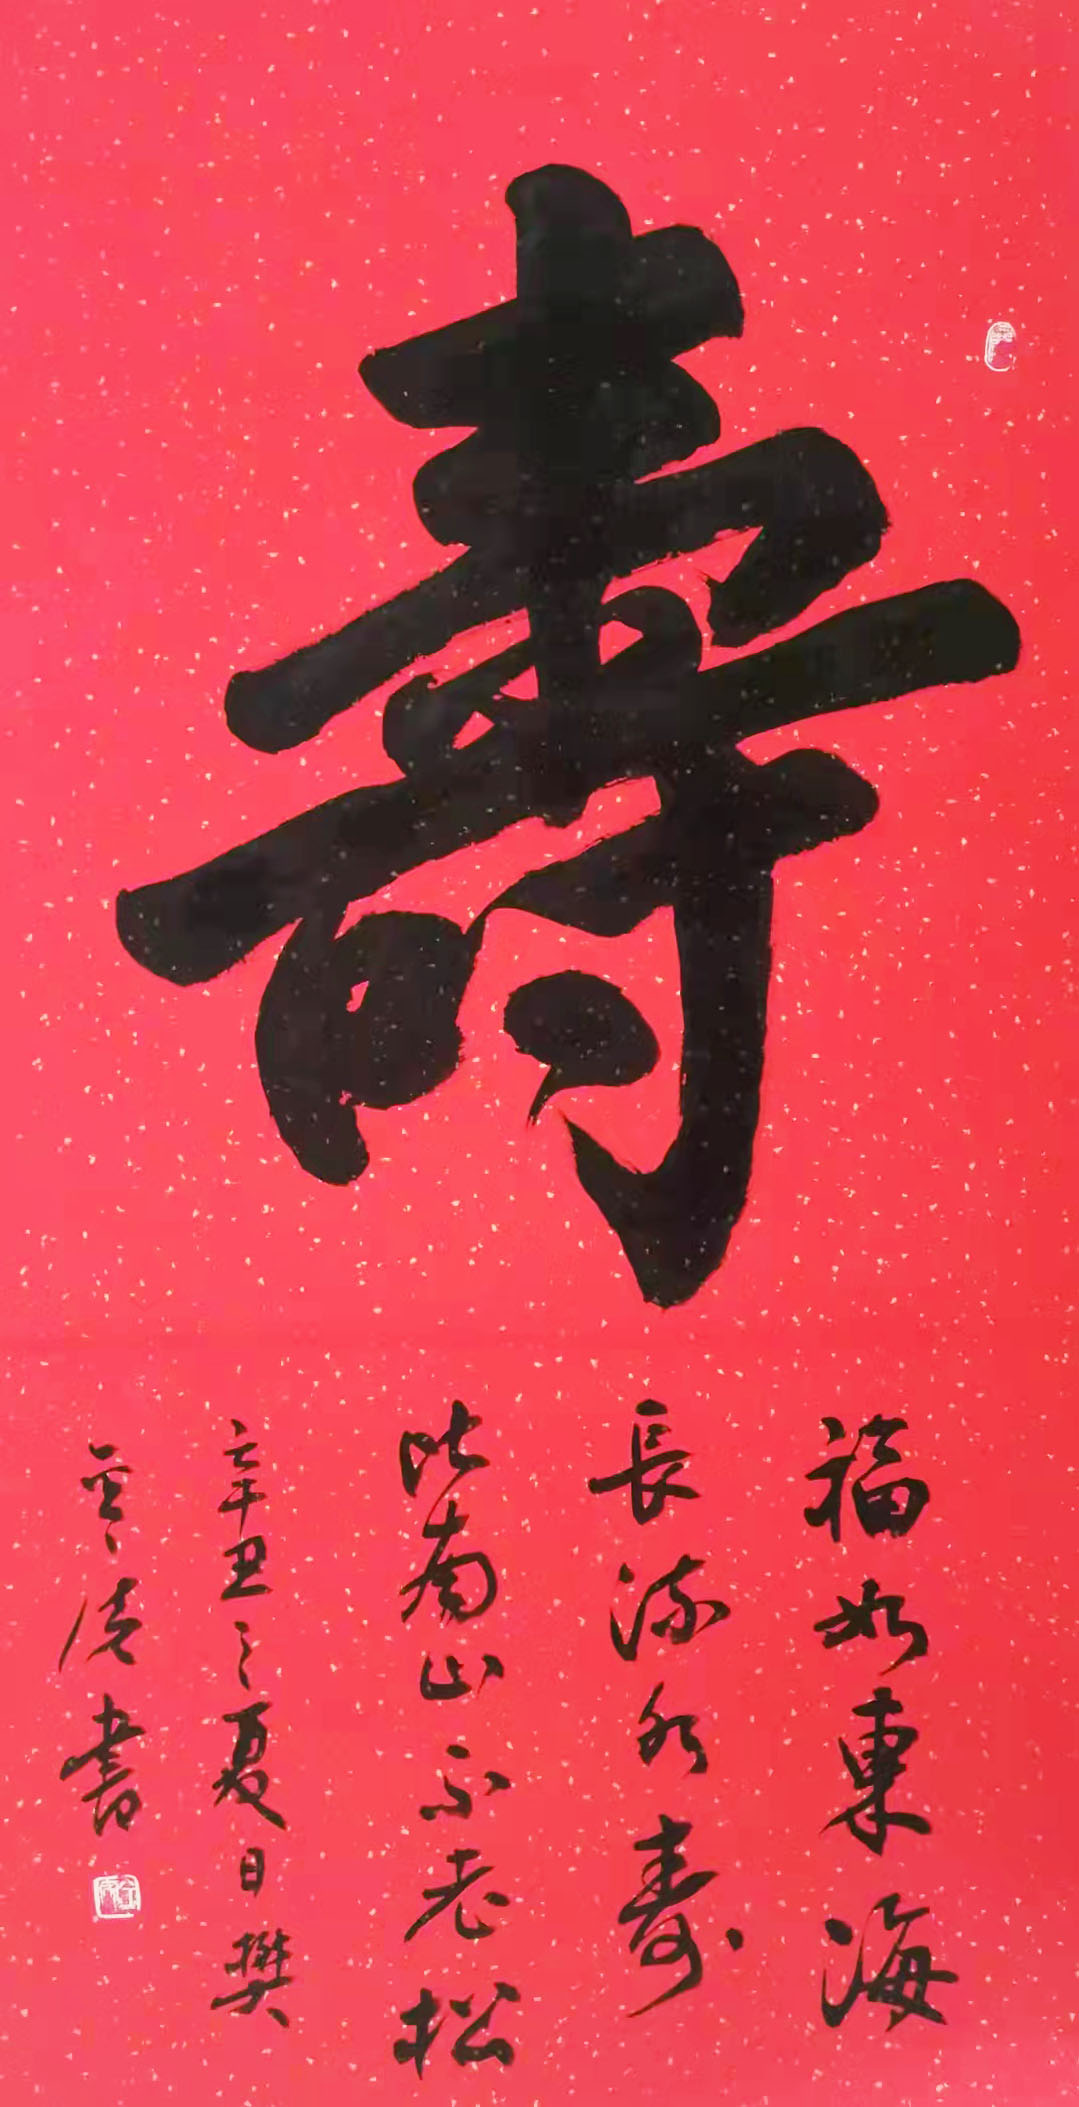 壽
福如東海
長流水壽
比南山不老松
辛丑之夏日樊
書